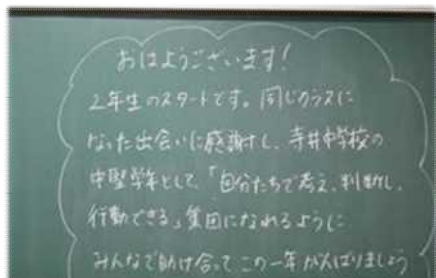 おはようございます!
2年生のスタートです。同じクラスに
なった出会いに感謝し、寺井中学校の
中堅学年として、「自分たちで考え、判断し、
行動できる」集団になれるように
みんなで助け合ってこの一年がんばりましょう